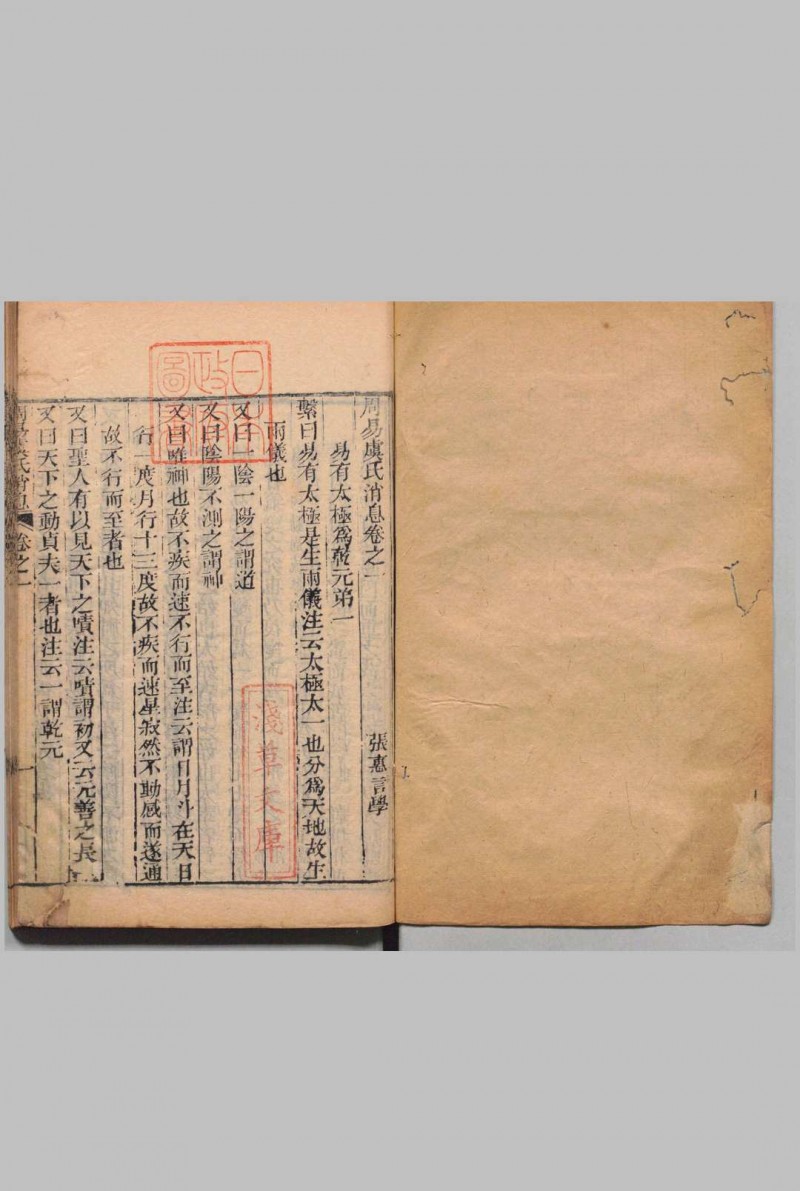 周易虞氏消息卷之一
張惠言學
易有太極爲乾元第一
繫曰易有太極是生兩儀注云太極太一也分爲天地故生
兩儀也
又曰一陰一陽之謂道
又曰陰陽不測之謂神
又曰唯神也故不疾而速不行而至注云謂日月斗在天日
行一度月行十三度故不疾而速星寂然不動感而遂通
故不行而至者也
又曰聖人有以見天下之嘖注云嘖謂初又云元善之長
又曰天下之動貞夫一者也注云一謂乾元
氏消息
卷之一
淺草文庫
日本政圖